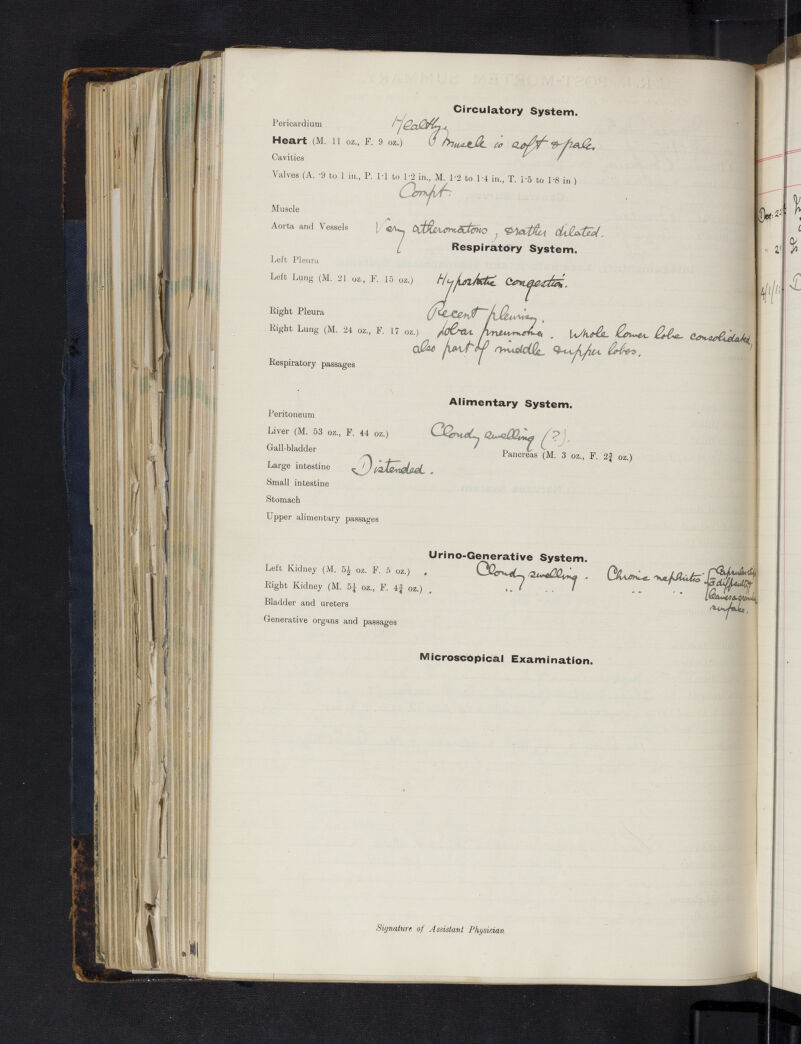 Circulatory System.
Pericardium Healthy.
Heart (M. 11 oz., F. 9 oz.) muscle is soft & pale.
Cavities
Valves (A. ·9 to 1 in., P. 1·1 to 1·2 in., M. 1·2 to 1·4 in., T. 1·5 to 1·8 in)
Compt.
Muscle
Aorta and Vessels Very atheromatous, & rather dilated.
Respiratory System.
Left Pleura
Left Lung (M. 21 oz., F. 15 oz.) Hypostatic congestion.
Right Pleura Recent pleurisy.
Right Lung (M. 24 oz., F. 17 oz.) Lobar pneumonia. Whole lower lobe consolidated,
also part of middle & upper lobes.
Respiratory passages
Alimentary System.
Peritoneum
Liver (M. 53 oz., F. 44 oz.) Cloudy swelling (?).
Gall-bladder Pancreas (M. 3 oz., F. 2¾ oz.)
Large intestine Distended.
Small intestine
Stomach
Upper alimentary passages
Urino-Generative System.
Left Kidney (M. 5½ oz. F. 5 oz.) . Cloudy swelling. Chronic nephritis. Capsule strips
Right Kidney (M. 5¼ oz., F. 4¾ oz.) . " " " " c̄ difficulty &
leaves a granular
Bladder and ureters surface.
Generative organs and passages
Microscopical Examination.
Signature of Assistant Physician
Dec: 23